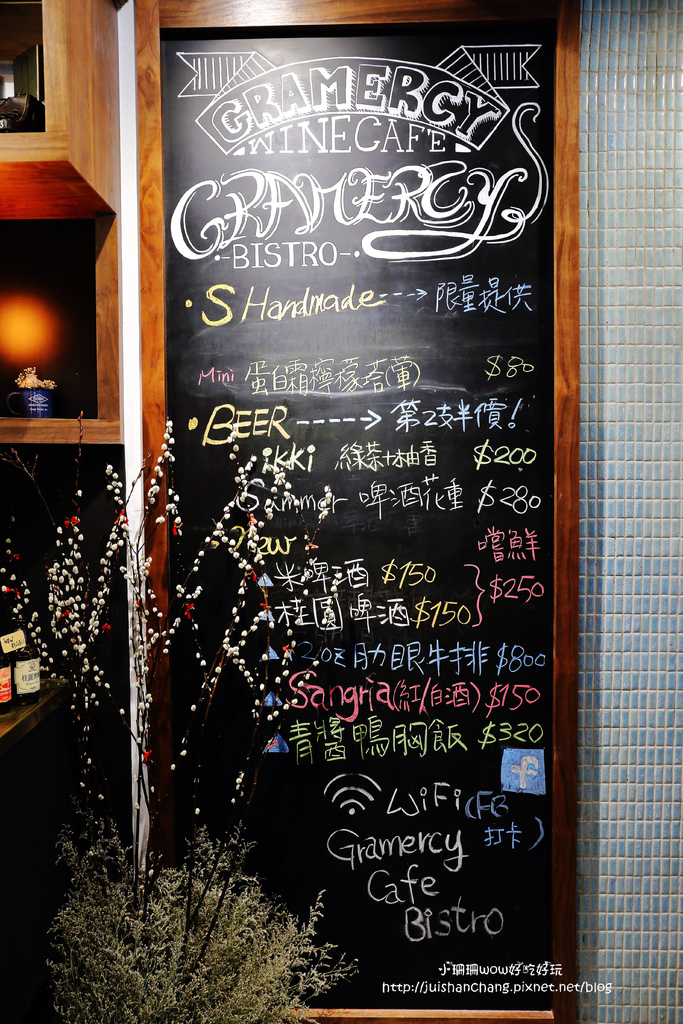 GRAMERCY
WINE CAFE
GRAMERCY
-BISTRO-
• S Handmade ---> 限量提供
Mini 蛋白霜檸檬塔(葷) $80
• BEER -----> 第2支半價!
ikki 綠茶+柚香 $200
Summer 啤酒花重 $280
New: 嚐鮮
米啤酒 $150
桂圓啤酒 $150 } $250
12oz 肋眼牛排 $800
Sangria(紅/白酒) $150
青醬鴨胸飯 $320
f
WiFi (FB
打卡)
Gramercy
Cafe
Bistro
小珊珊wow好吃好玩
http://juishanchang.pixnet.net/blog